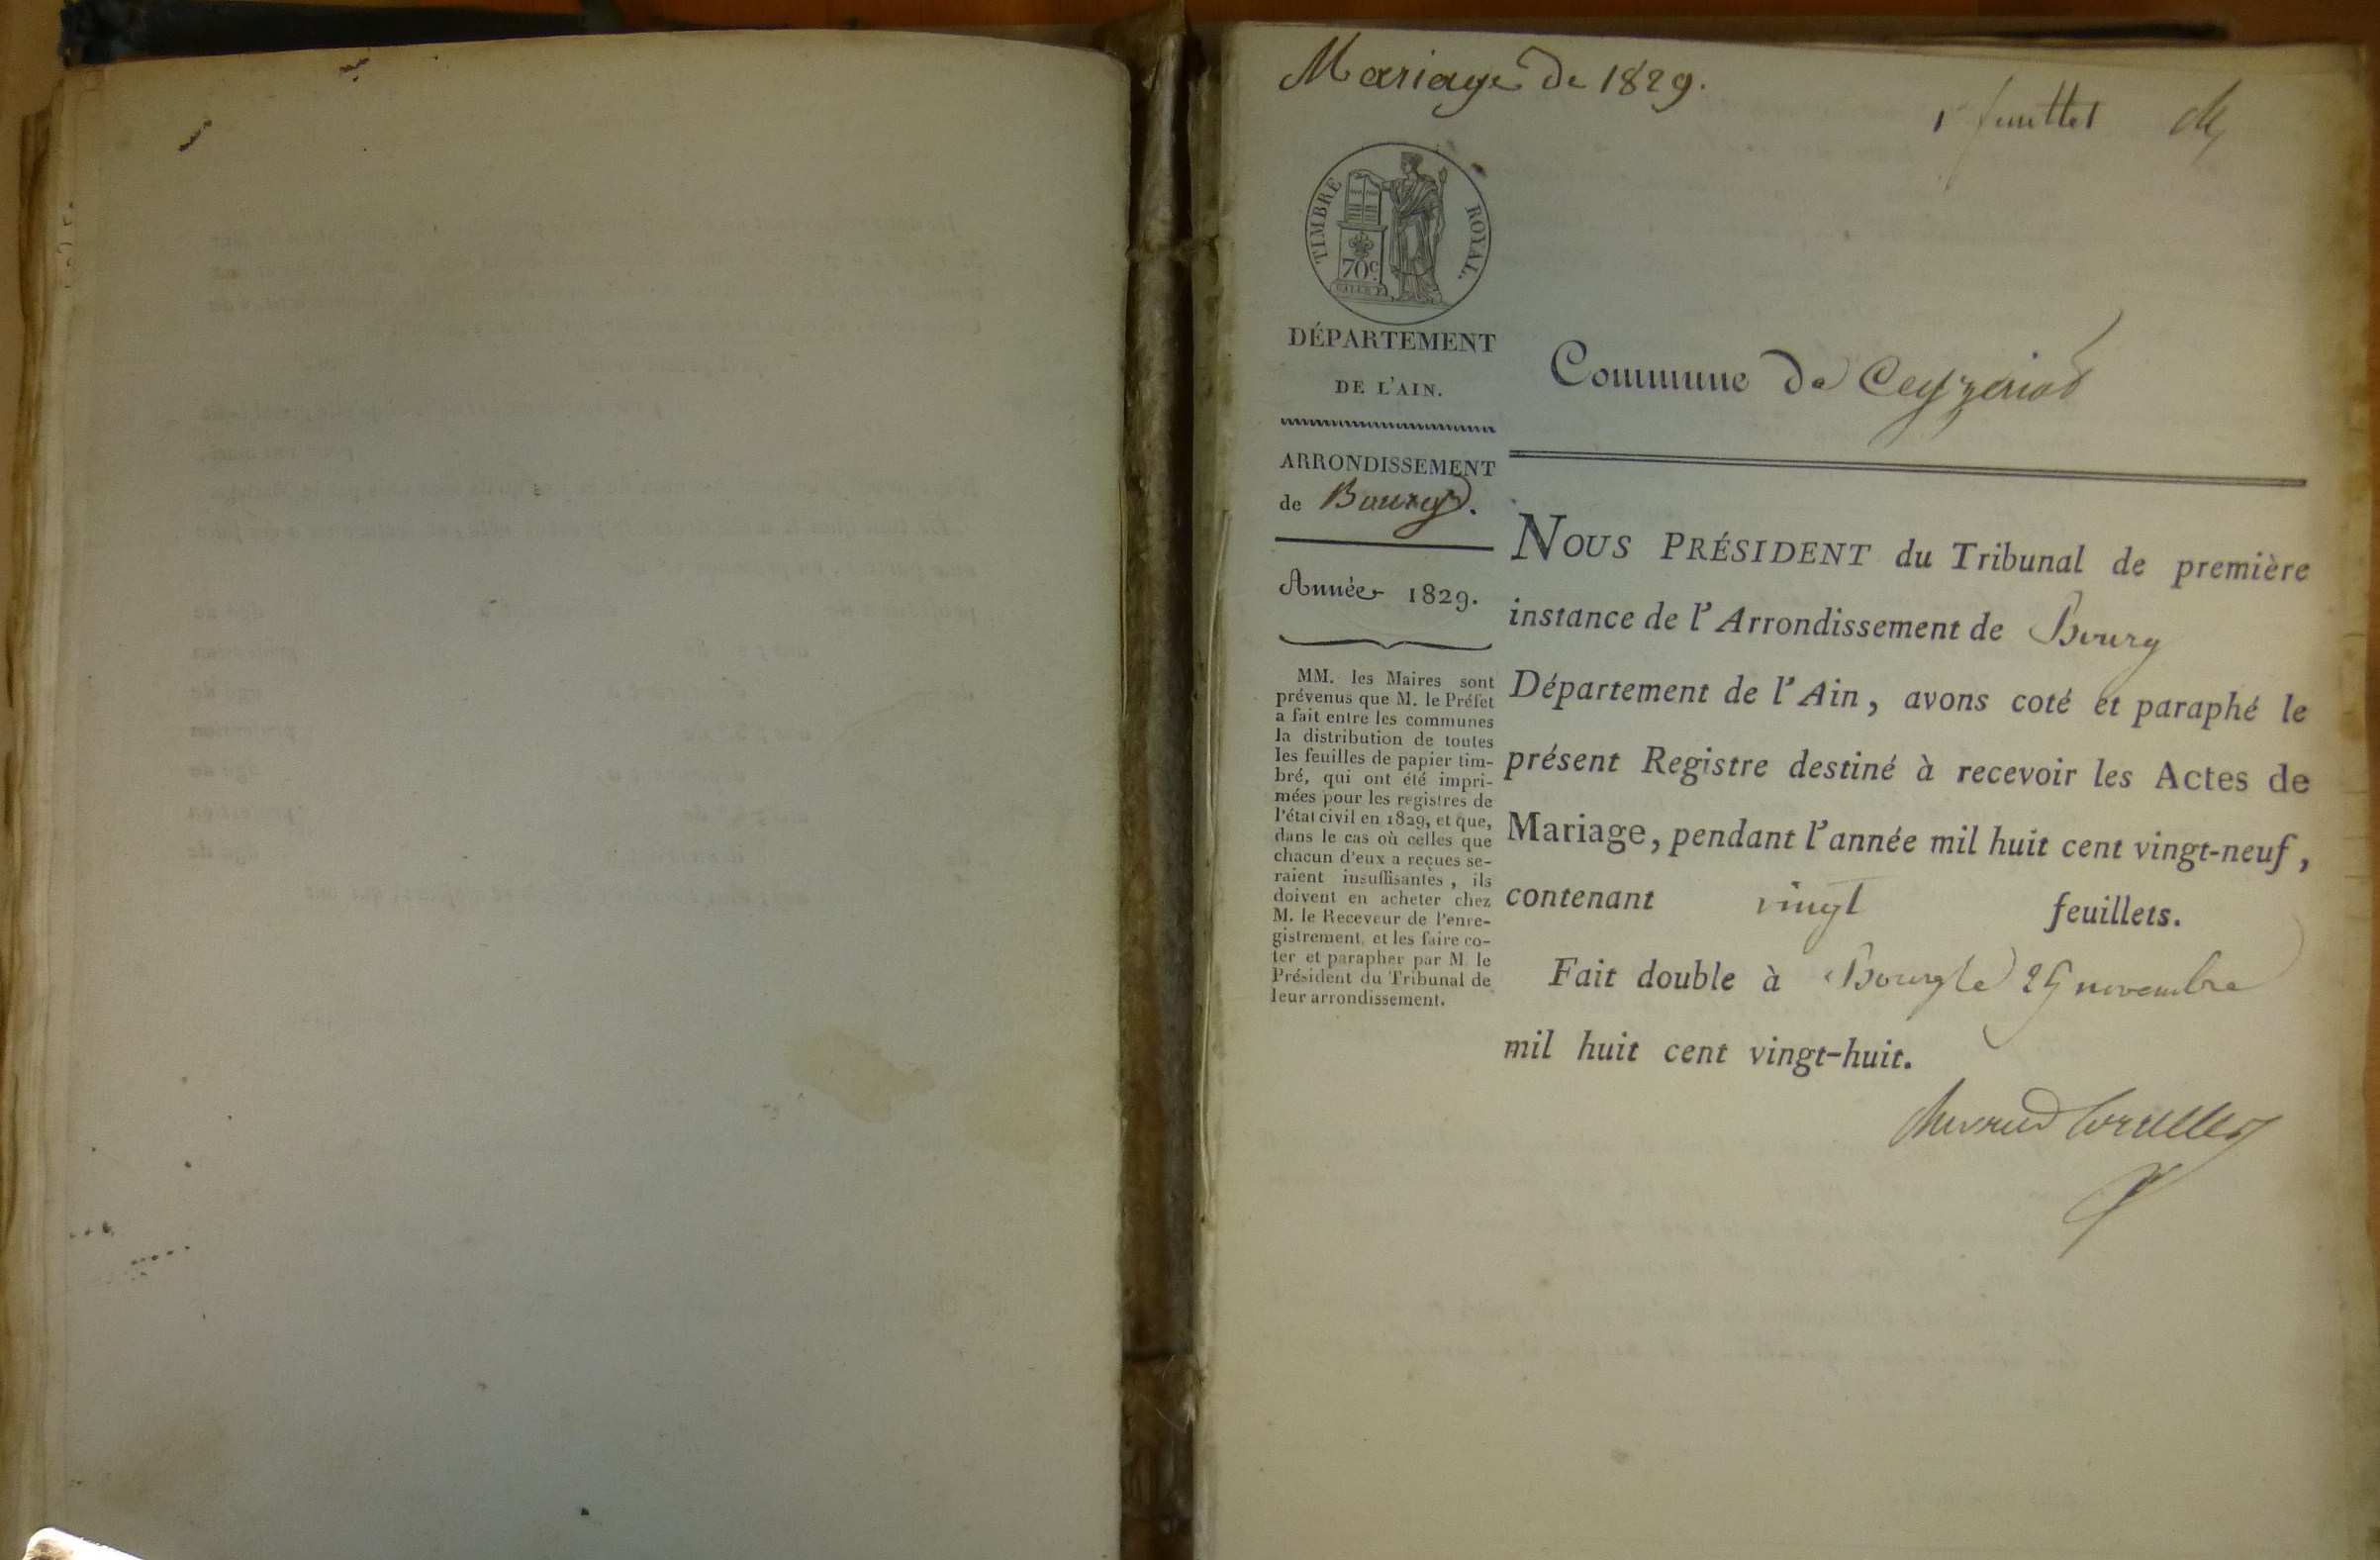 Mariage de 1829.
1er feuillet
TIMBRE ROYAL.
70c
DÉPARTEMENT
DE L'AIN.
Commune de Ceyzeriat
ARRONDISSEMENT
de Bourg.
Année 1829.
MM. les Maires sont
prévenus que M. le Préfet
a fait entre les communes
la distribution de toutes
les feuilles de papier tim-
bré, qui ont été impri-
mées pour les registres de
l'état civil en 1829, et que,
dans le cas où celles que
chacun d'eux a reçues se-
raient insuffisantes, ils
doivent en acheter chez
M. le Receveur de l'enre-
gistrement, et les faire co-
ter et parapher par M. le
Président du Tribunal de
leur arrondissement.
NOUS PRÉSIDENT du Tribunal de première
instance de l'Arrondissement de Bourg
Département de l'Ain, avons coté et paraphé le
présent Registre destiné à recevoir les Actes de
Mariage, pendant l'année mil huit cent vingt-neuf,
contenant vingt feuillets.
Fait double à Bourg le 25 novembre
mil huit cent vingt-huit.